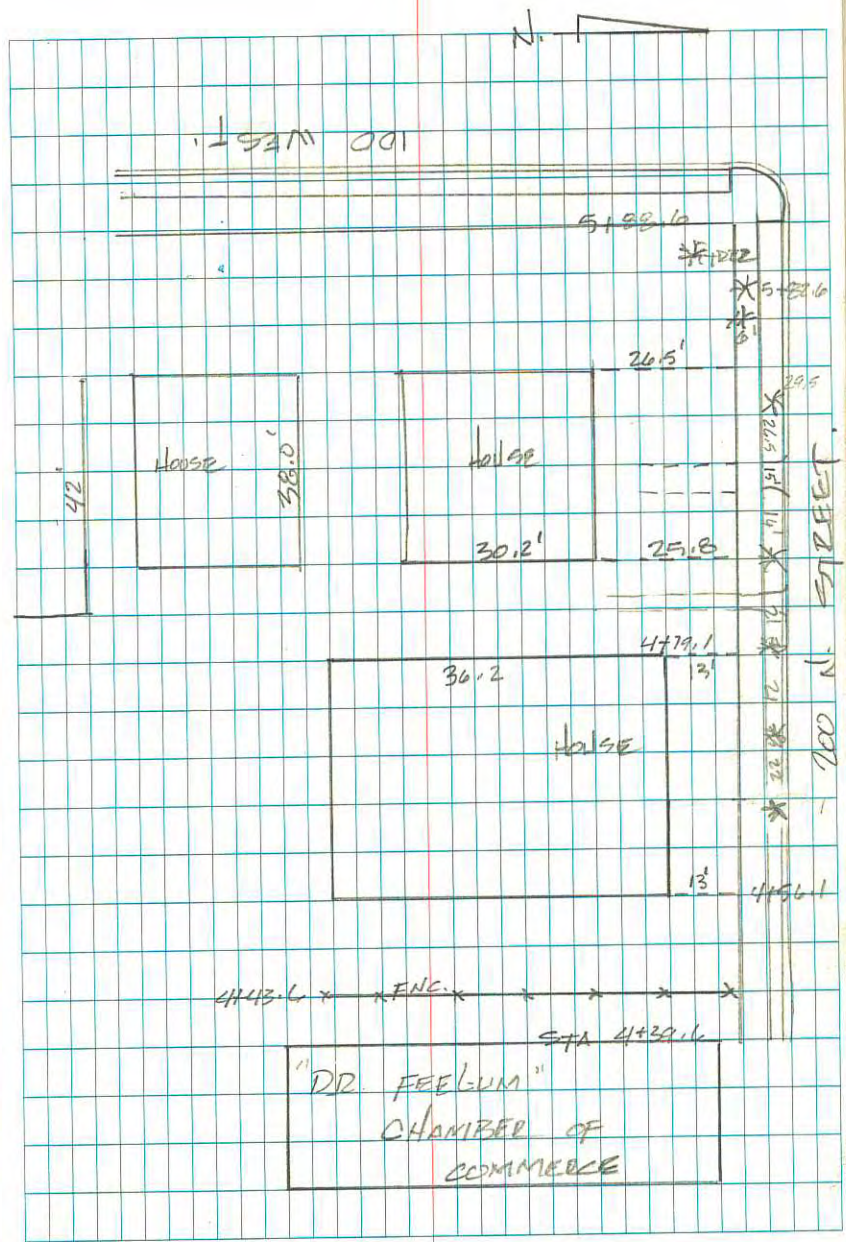 N.
100 WEST.
5+88.6
5+82.6
6'
26.5'
29.5
26.5
15'
14'
42'
HOUSE
38.0'
HOUSE
30.2'
25.8
21
4+79.1
36.2
13'
21
HOUSE
22
200 N. STREET.
13'
4+56.1
4+43.6
FNC.
STA 4+39.6
"DR. FEELGUM"
CHAMBER OF
COMMERCE